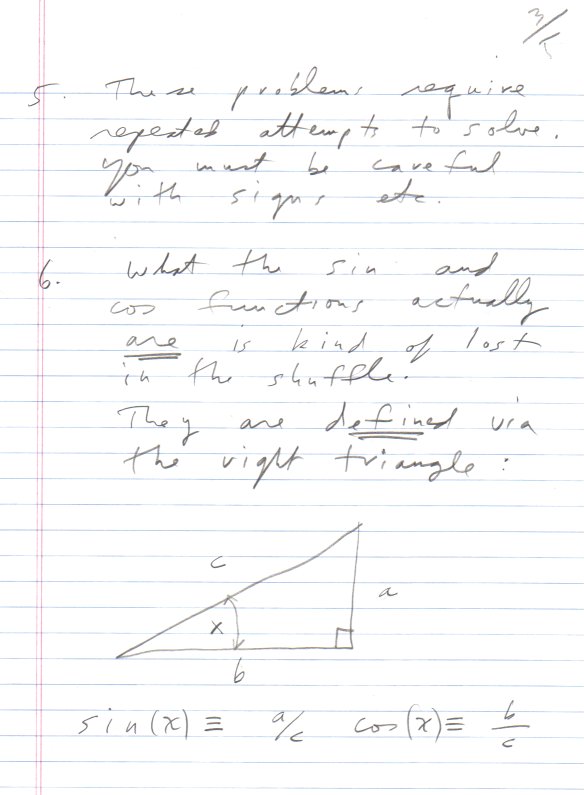 3/5
5. These problems require
repeated attempts to solve.
you must be careful
with signs etc.
6. What the sin and
cos functions actually
are is kind of lost
in the shuffle.
They are defined via
the right triangle:
c
a
x
b
sin(x) ≡ a/c cos(x) ≡ b/c